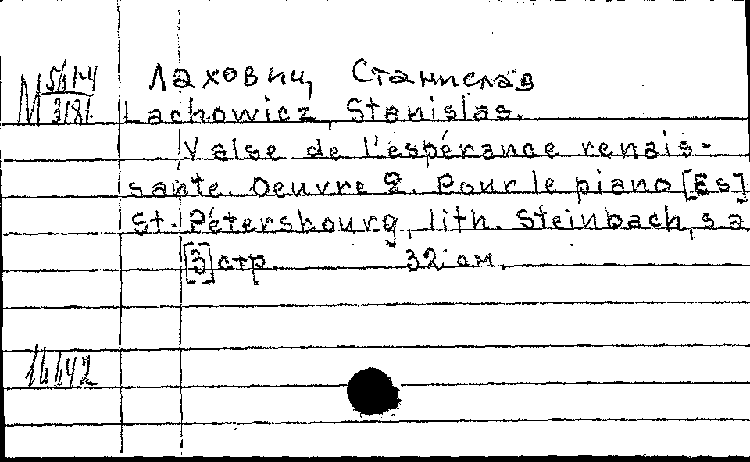 Лаховиц, Станислав
Lachowicz, Stanislas.
Valse de l'espérance renais-
sante. Oeuvre 2. Pour le piano [Es]
St.-Pétersbourg, lith. Steinbach, s a
[3] стр 32 см.